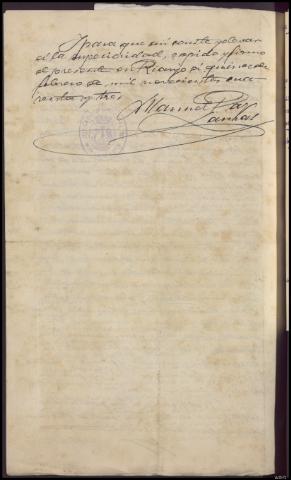 Y para que asi conste y elevar
a la Superioridad, expido y firmo
el presente en Rianjo a quince de
febrero de mil novecientos cua-
renta y tres.
Manuel